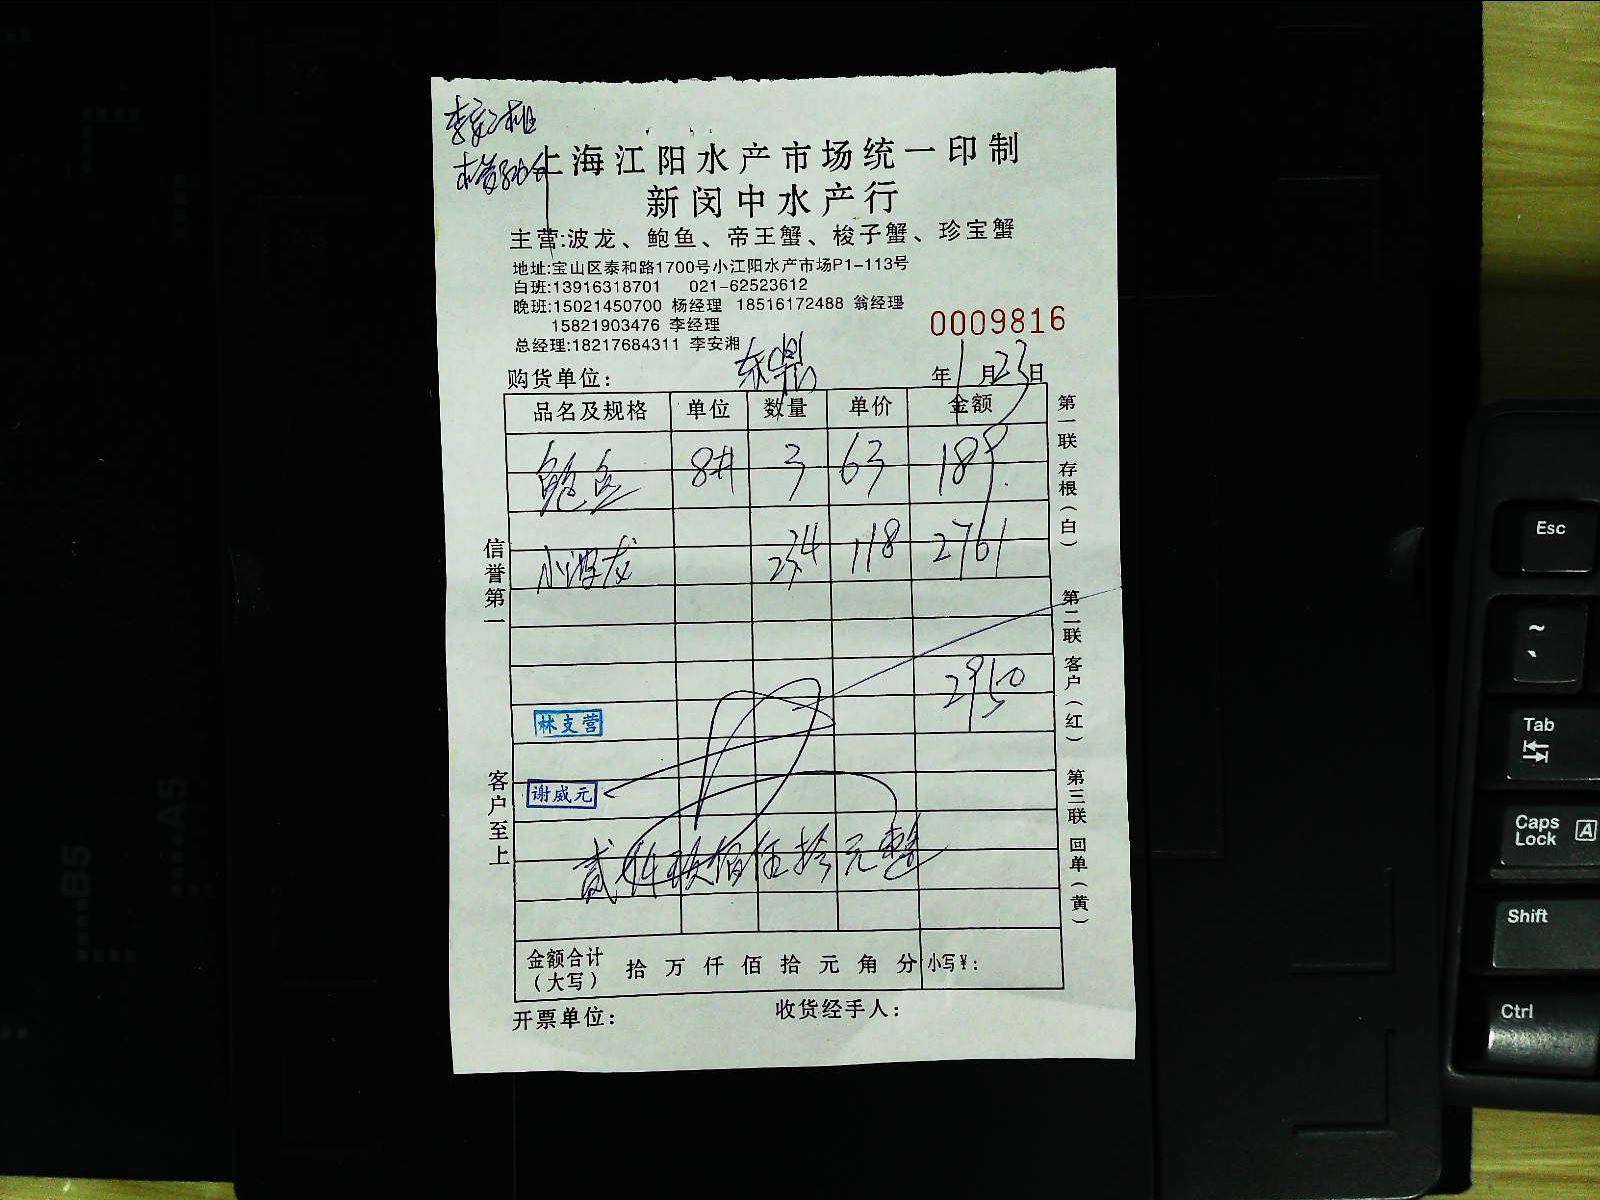 上海江阳水产市场统一印制
新闵中水产行
主营:波龙、鲍鱼、帝王蟹、梭子蟹、珍宝蟹
地址:宝山区泰和路1700号小江阳水产市场P1-113号
白班:13916318701 021-62523612
晚班:15021450700 杨经理 18516172488 翁经理
15821903476 李经理
总经理:18217684311 李安湘
0009816
购货单位: 年1月23日
品名及规格 单位 数量 单价 金额
鲍鱼 8# 3 63 189
小波龙 23.4 118 2761
2950
林支营
谢威元
贰仟玖佰伍拾元整
金额合计(大写) 拾 万 仟 佰 拾 元 角 分 小写¥:
开票单位: 收货经手人:
信誉第一
客户至上
第一联 存根(白)
第二联 客户(红)
第三联 回单(黄)
Esc
~
`
Tab
Caps Lock A
Shift
Ctrl
B5
A5